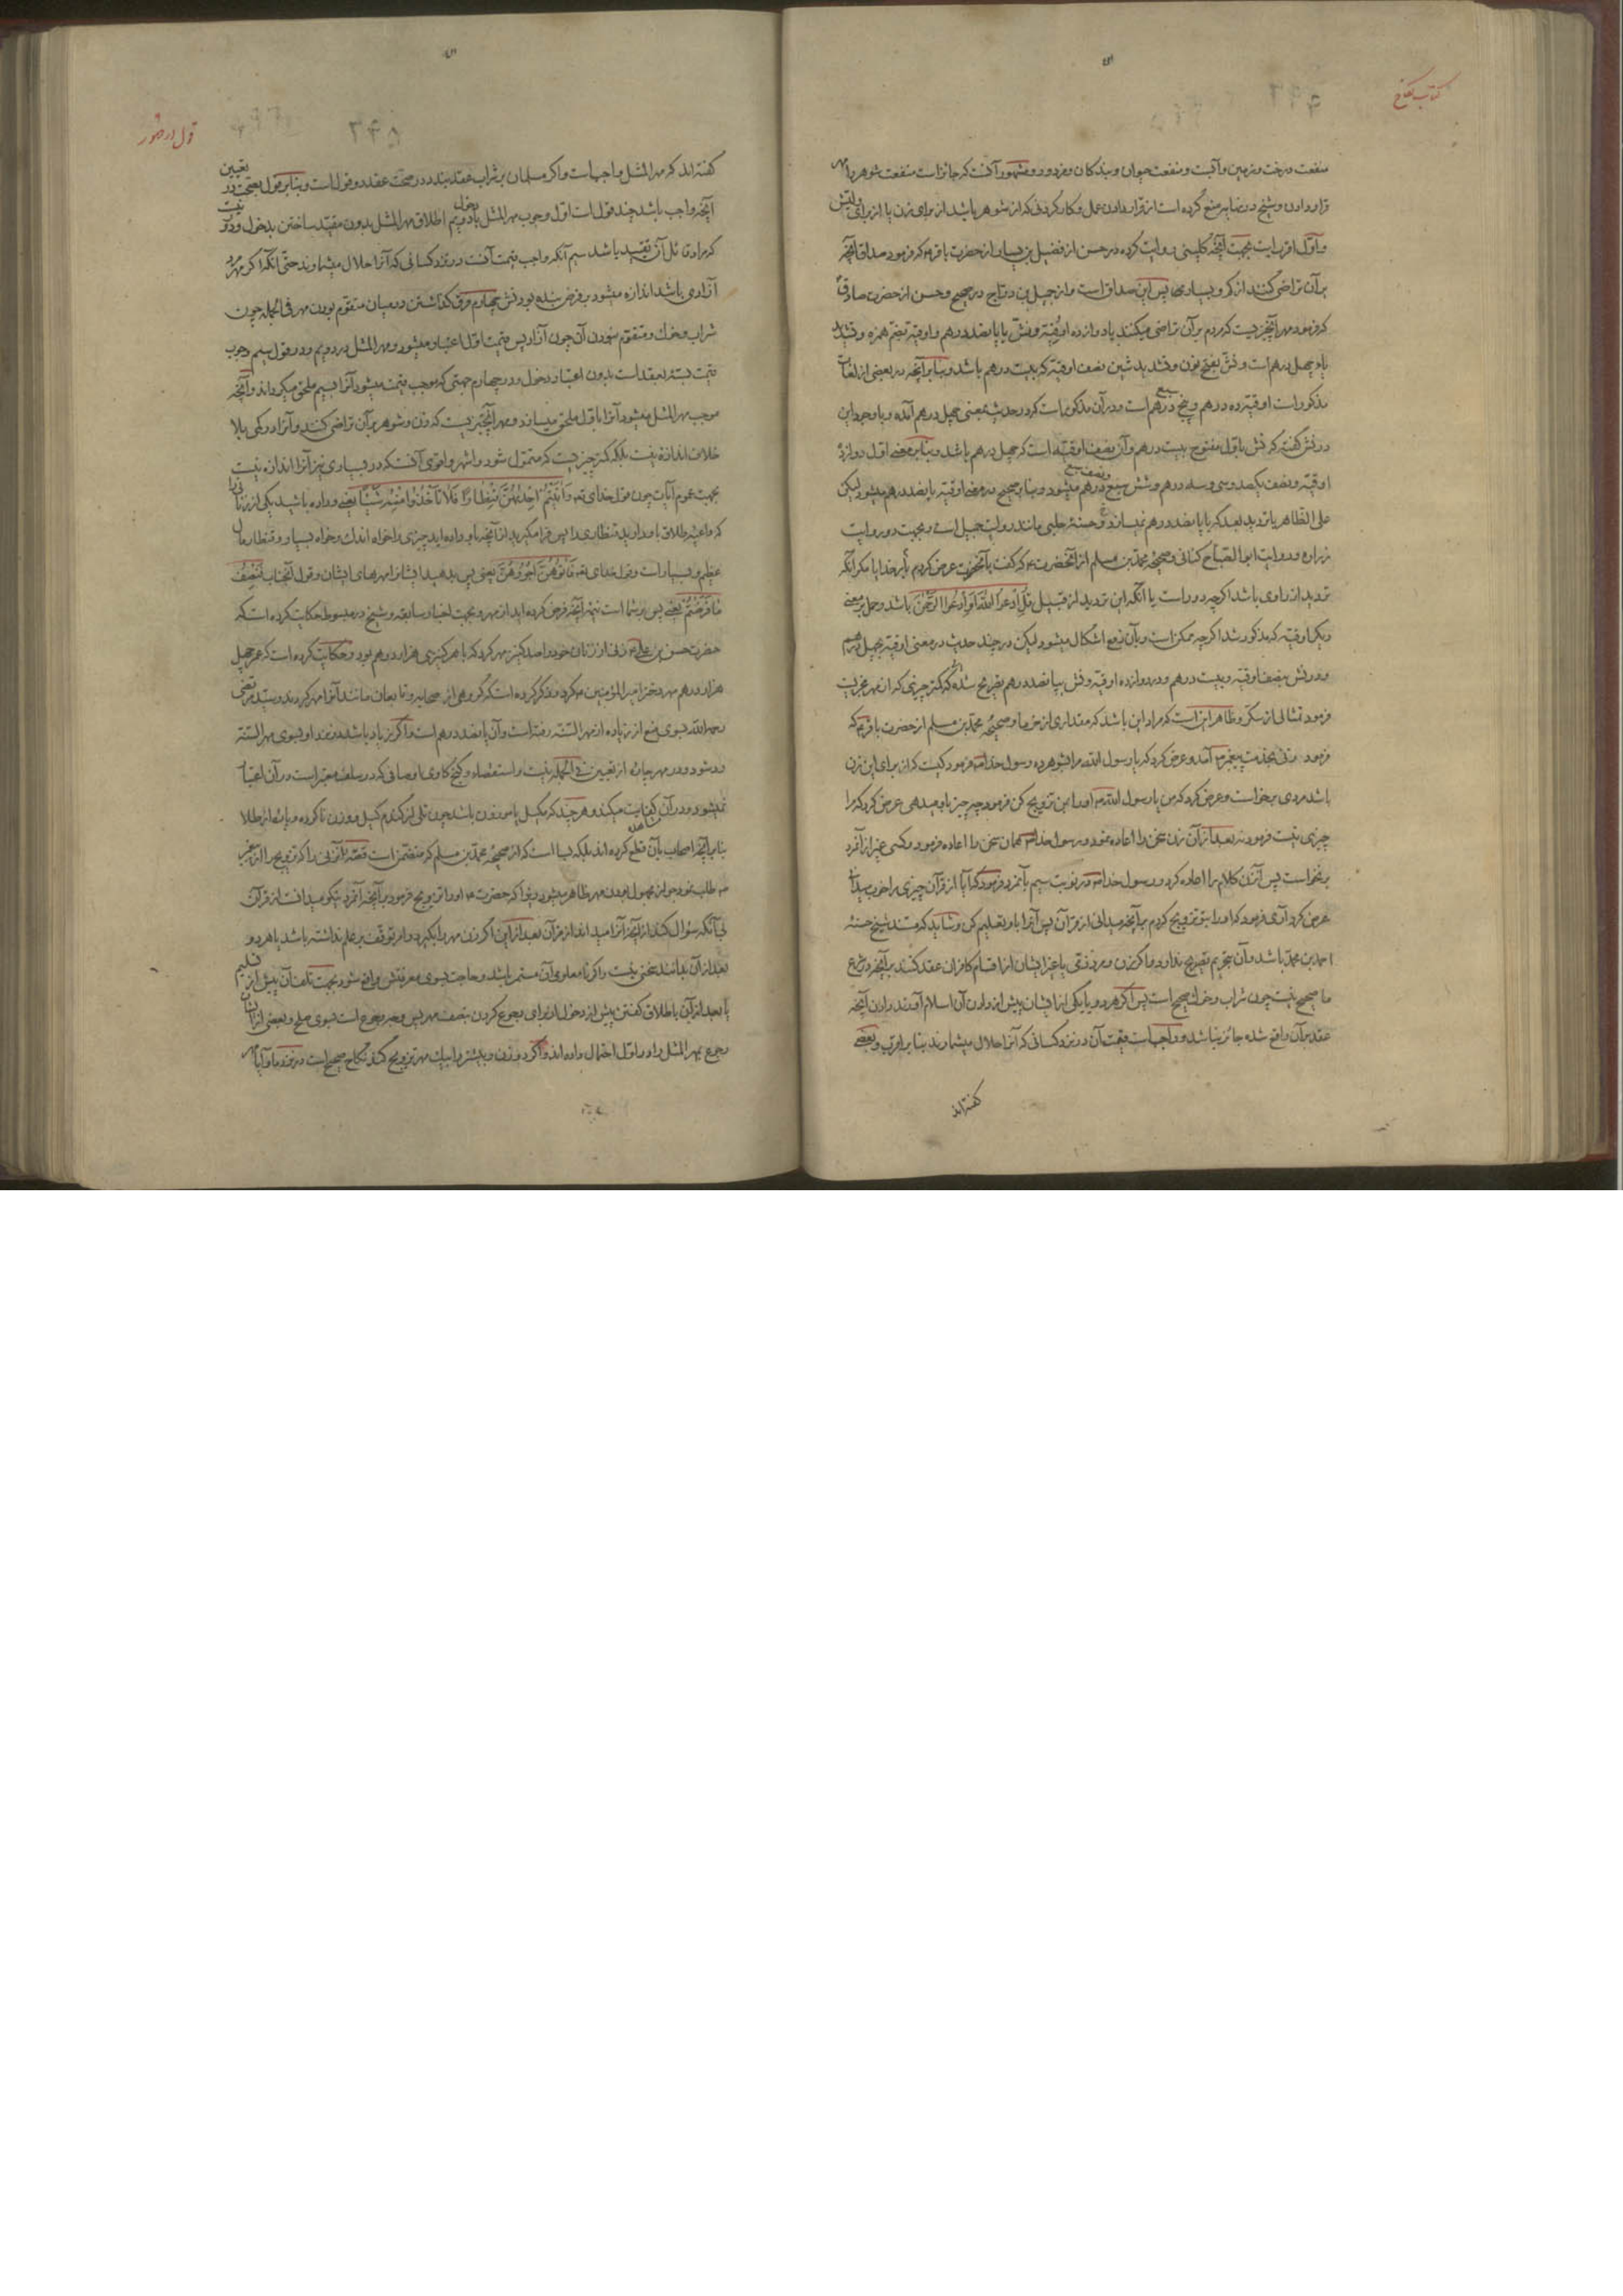 کتاب نکاح
منفعت درخت و زمین و آبست و منفعت حیوان و بندکان و مزدور و مشهور آنست که جایز است منفعت شوهر را مهر
قرار دادن و شیخ در نهایه منع کرده است از قرار دادن عمل و کار کردنی که از شوهر باشد از برای زن یا از برای ولیش
و اول اقربست بجهت آنچه کلینی روایت کرده در حسن از فضیل بن یسار از حضرت باقر که فرمود صداق آنچه
بر آن تراضی کنند از کم و بسیاری پس این صداق است و از جمیل بن دراج در صحیح و حسن از حضرت صادق
که فرمود مهر آنچیزیست که مردم بر آن تراضی میکنند یا دوازده اوقیّه و نشّ یا پانصد درهم و اوقیه بضم همزه و تشدید
یاء چهل درهم است و نشّ بفتح نون و تشدید شین نصف اوقیه که بیست درهم باشد و بنابر آنچه در بعضی از لغات
مذکور است اوقیه ده درهم و پنج سبع درهم است و در آن مذکور است که در حدیث بمعنی چهل درهم آمده و با وجود این
در نش گفته که نش باول مفتوح بیست درهم و آن نصف اوقیه است که چهل درهم باشد و بنابر معنی اول دوازده
اوقیه و نصف یکصد و سی و سه درهم و شش سبع و نصف سبع درهم میشود و بنابر صحیح در معنی اوقیه پانصد درهم میشود لیکن
علی الظاهر با تردید بعد که یا پانصد درهم نمیسازد و حسنهٔ حلبی مانند روایت جمیل است و بجهت دو روایت
زراره و روایت ابوالصباح کنانی و صحیحهٔ محمد بن مسلم از آنحضرت که گفت بآنحضرت عرض کردم
تردید از راوی باشد اگرچه دور است یا آنکه این تردید از قبیل قُلِ ادْعُوا اللّهَ اَوِ ادْعُوا الرَّحْمنَ باشد و حمل بر معنی
دیکر اوقیه که مذکور شد اگرچه ممکن است و بآن رفع اشکال میشود لیکن در چند حدیث در معنی اوقیه بچهل درهم
و در نش بنصف اوقیه و بیست درهم و در دوازده اوقیه و نش بپانصد درهم تصریح شده که کمتر چیزی که از مهر مجزیست
فرمود تمثالی از سکّر و ظاهر اینست که مراد این باشد که مقداری از خرما و صحیحهٔ محمد بن مسلم از حضرت باقر که
فرمود زنی بخدمت پیغمبر آمد و عرض کرد که یا رسول الله مرا بشوهر ده رسول خدا فرمود کیست که از برای این زن
باشد مردی برخواست و عرض کرد که من یا رسول الله او را بمن تزویج کن فرمود چه چیز باو میدهی عرض کرد که مرا
چیزی نیست فرمود نه بعد از آن زن سخن را اعاده نمود و رسول خدا همان سخن را اعاده فرمود و کسی غیر از آنمرد
برنخواست پس آنزن کلام را اعاده کرد و رسول خدا در نوبت سیم بآنمرد فرمود که آیا از قرآن چیزی را خوب میدانی
عرض کرد آری فرمود که او را بتو تزویج کردم بر آنچه میدانی از قرآن پس آنرا باو تعلیم کن و شاید که مستند شیخ حسنهٔ
احمد بن محمد باشد و آن بتحریم تصریح ندارد و اما کر زن و مرد ذمّی یا غیر ایشان از اقسام کافران عقد کنند بر آنچه در شرع
ما صحیح نیست چون شراب و خوک صحیح است پس اگر هر دو یا یکی از ایشان پیش از دادن آن اسلام آورند دادن آنچه
عقد بر آن واقع شده جائز نباشد و واجبست قیمت آن در نزد کسانی که آنرا حلال میشمارند بنابر اقرب و بعضی
کفته اند
٢٣٨
کفته اند که مهر المثل واجبست و اکر مسلمان بر شراب عقد بندد در صحت عقد دو قول است و بنابر قول بصحت در تعیین
آنچه واجب باشد چند قول است اول وجوب مهر المثل با دخول دویم اطلاق مهر المثل بدون مقید ساختن بدخول و دور نیست
که مراد قائل آن تقیید باشد سیم آنکه واجب قیمت آنست در نزد کسانی که آنرا حلال میشمارند حتی آنکه اکر مهر مرد
آزادی باشد اندازه میشود بفرض بنده بودنش چهارم فرق گذاشتن در میان متقوم بودن مهر فی الجمله چون
شراب و خوک و متقوم نبودن آن چون آزاد پس قیمت اول اعتبار میشود و مهر المثل در دویم و در قول سیم وجوب
قیمت مستند بعقد است بدون اعتبار دخول و در چهارم جهتی که موجب قیمت میشود آنرا بسیم ملحق میکرداند و آنچه
موجب مهر المثل میشود آنرا باول ملحق میسازد و مهر آنچیزیست که زن و شوهر بر آن تراضی کنند و آنرا در کمی بلا
خلاف اندازه نیست بلکه کمتر چیزیست که متمول شود و اشهر و اقوی آنست که در بسیاری نیز آنرا اندازه نیست
بجهت عموم آیات چون قول خدای تعالی وَ اٰتَیْتُمْ اِحْدٰیهُنَّ قِنْطٰارًا فَلٰا تَاْخُذُوا مِنْهُ شَیْئًا یعنی و داده باشید یکی از زنانی را
عظیم و بسیار است و قول خدای تعالی فَاٰتُوهُنَّ اُجُورَهُنَّ یعنی پس بدهید ایشانرا مهرهای ایشان و قول آنجناب فَنِصْفُ
مٰا فَرَضْتُمْ یعنی پس بر شما است نیمهٔ آنچه فرض کرده اید از مهر و بجهت اخبار سابقه و شیخ در مبسوط حکایت کرده است که
حضرت حسن بن علی زنی از زنان خود را صد کنیز مهر کرد که با هر کنیزی هزار درهم بود و حکایت کرده است که عمر چهل
هزار درهم مهر دختر امیر المؤمنین کرد و ذکر کرده است که کروهی از صحابه و تابعان مانند آنرا مهر کردند و سید مرتضی
رحمه الله بسوی منع از زیاده از مهر السنّه رفته است و آن پانصد درهم است و اکر زیاد باشد در نزد او بسوی مهر السنّة
رد شود و در مهر چاره از تعیین فی الجمله نیست و استقصاء و کنج کاوی اوصافی که در سلف معتبر است در آن اعتبار
نمیشود و در آن مشاهده کفایت میکند و هر چند که مکیل یا موزون باشد چون تلی از کندم کیل و وزن ناکرده و پارهٔ از طلا
بنابر آنچه اصحاب بآن قطع کرده اند بلکه بسا است که از صحیحهٔ محمد بن مسلم که متضمن است قصّهٔ آنزنی را که تزویج را از پیغمبر
طلب نمود جواز مجهول بودن مهر ظاهر میشود زیرا که حضرت او را تزویج فرمود بر آنچه آنمرد نیکو میدانست از قرآن
بی آنکه سؤال کند از آنچه آنرا میداند از قرآن بعد از این اگر زن مهر را بگیرد و امر توقف بر علم نداشته باشد یا هر دو
بعد از آن بدانند سخنی نیست و اکر نا معلومی آن مستمر باشد و حاجت بسوی معرفتش واقع شود بجهت تلف آن پیش از تسلیم
یا بعد از آن با طلاق گفتن پیش از دخول از برای رجوع کردن بنصف مهر پس وجه رجوع است بسوی صلح و بعضی از ایشان
رجوع بمهر المثل را در اول احتمال داده اند و اگر دو زن و بیشتر را بیک مهر تزویج کند نکاح صحیح است در نزد ما و آیا مهر